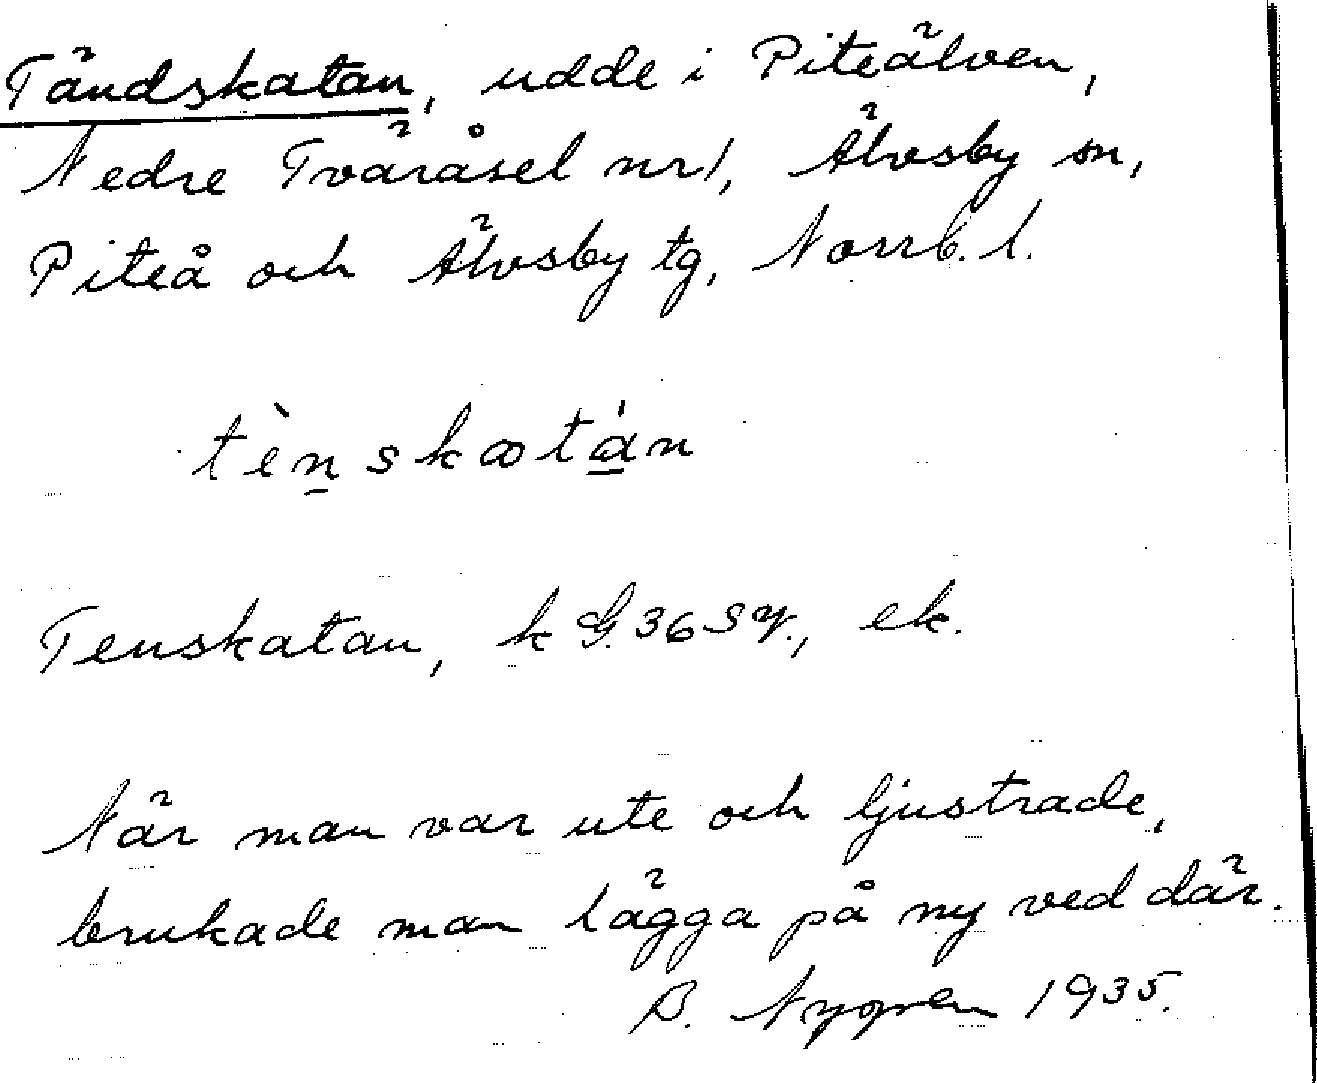 Tändskatan, udde i Piteälven,
Nedre Tväråsel nr 1, Älvsby sn,
Piteå och Älvsby tg, Norrb. l.
tènskatán
Tenskatan, k G. 36 SV., ek.
När man var ute och ljustrade,
brukade man lägga på ny ved där.
B. Nygren 1935.